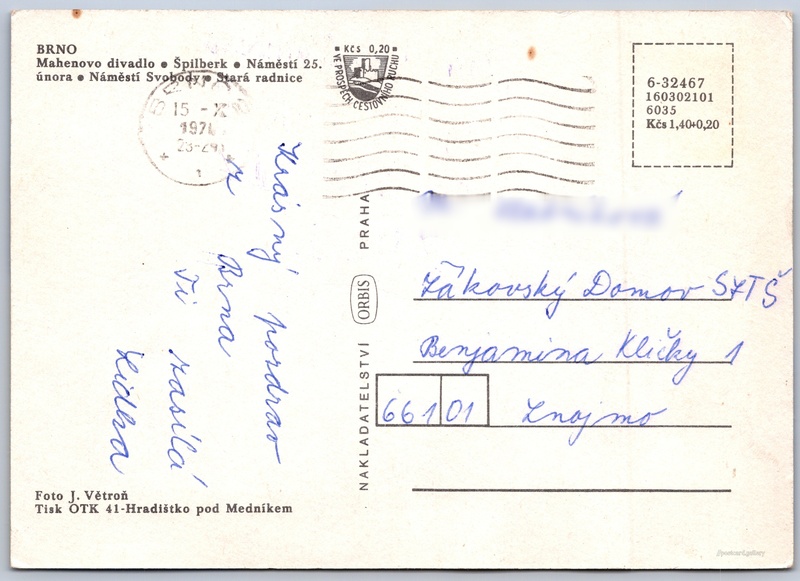 BRNO
Mahenovo divadlo • Špilberk • Náměstí 25.
února • Náměstí Svobody • Stará radnice
Kčs 0,20
VE PROSPĚCH CESTOVNÍHO RUCHU
15 -X
197
6-32467
160302101
6035
Kčs 1,40+0,20
Krásný pozdrav
z Brna
Ti zasílá
Lidka
NAKLADATELSTVÍ ORBIS PRAHA
Žákovský Domov SZTŠ
Benjamina Kličky 1
661 01 Znojmo
Foto J. Větroň
Tisk OTK 41-Hradištko pod Medníkem